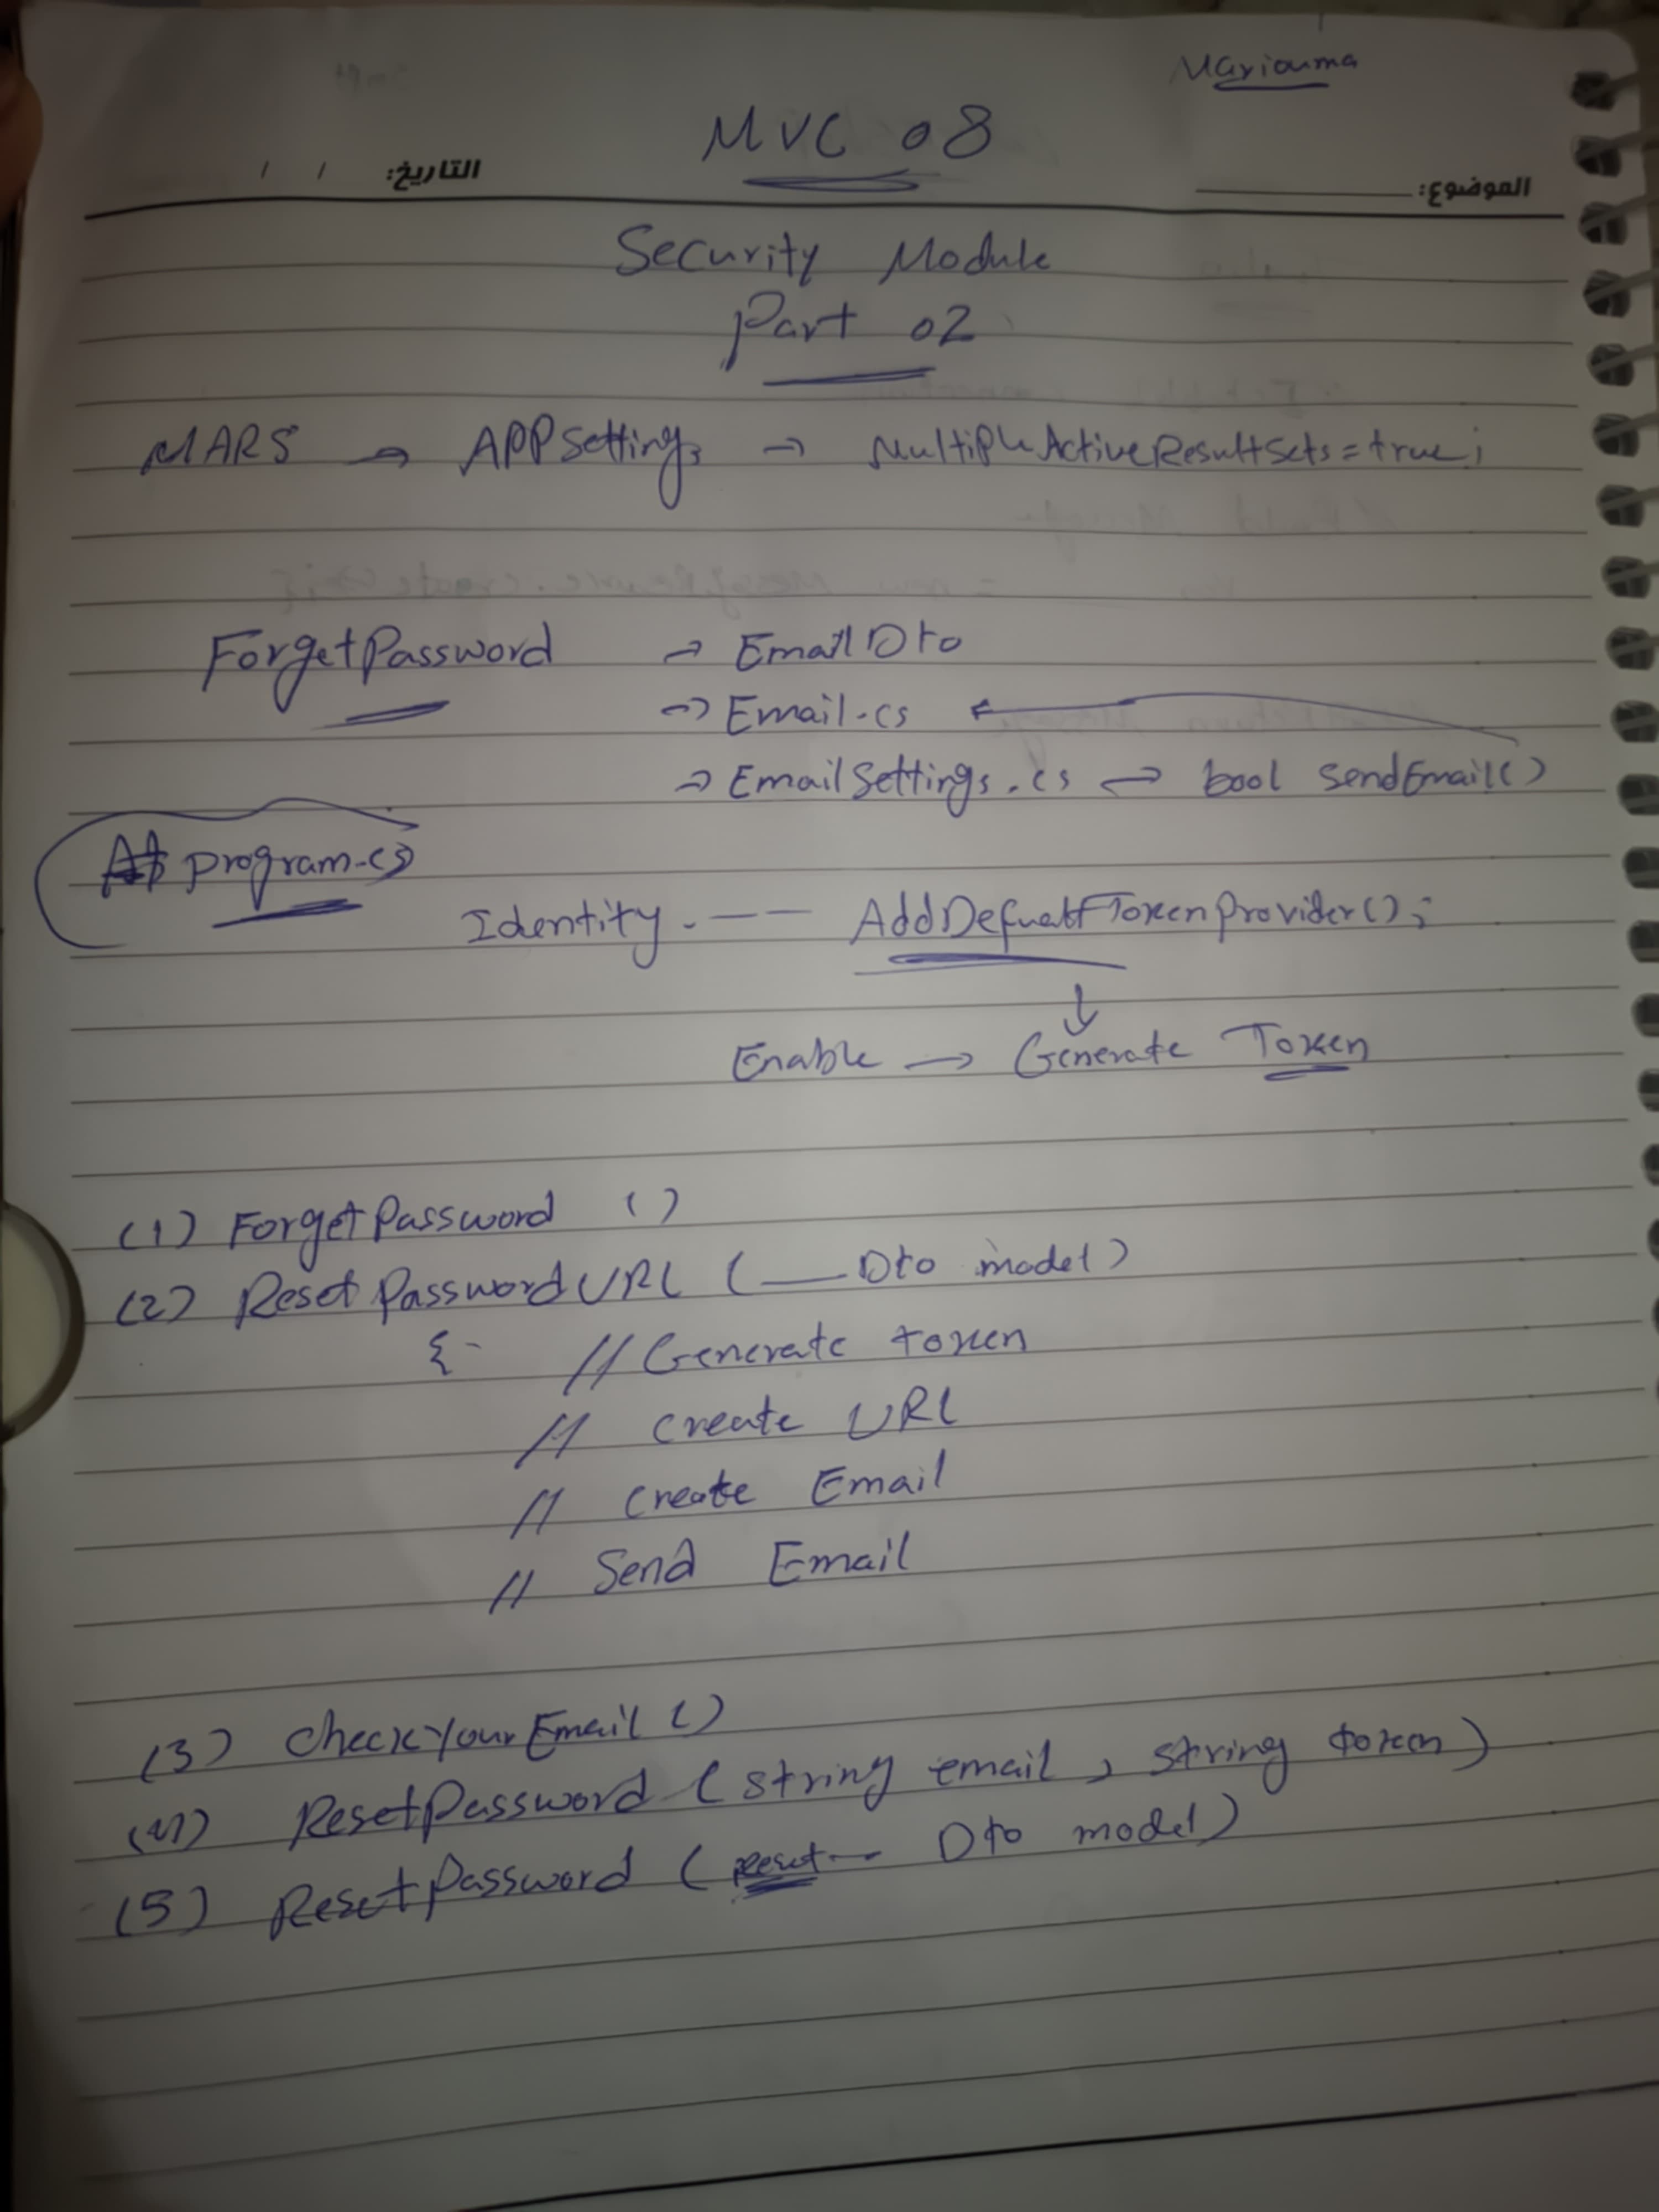 Mariouma
MVC 08
التاريخ: / /
الموضوع:
Security Module
Part 02
MARS → APPSettings → MultipleActiveResultSets = true;
ForgetPassword → EmailDto
→ Email.cs ←
→ EmailSettings.cs → bool sendEmail()
At program.cs
Identity. —— AddDefualtTokenProvider();
↓
Enable → Generate Token
(1) ForgetPassword ()
(2) ResetPasswordURL ( __ Dto model)
{ // Generate token
// create URL
// create Email
// Send Email
(3) checkYourEmail ()
(4) ResetPassword (string email , string token)
(5) ResetPassword ( Reset -- Dto model)